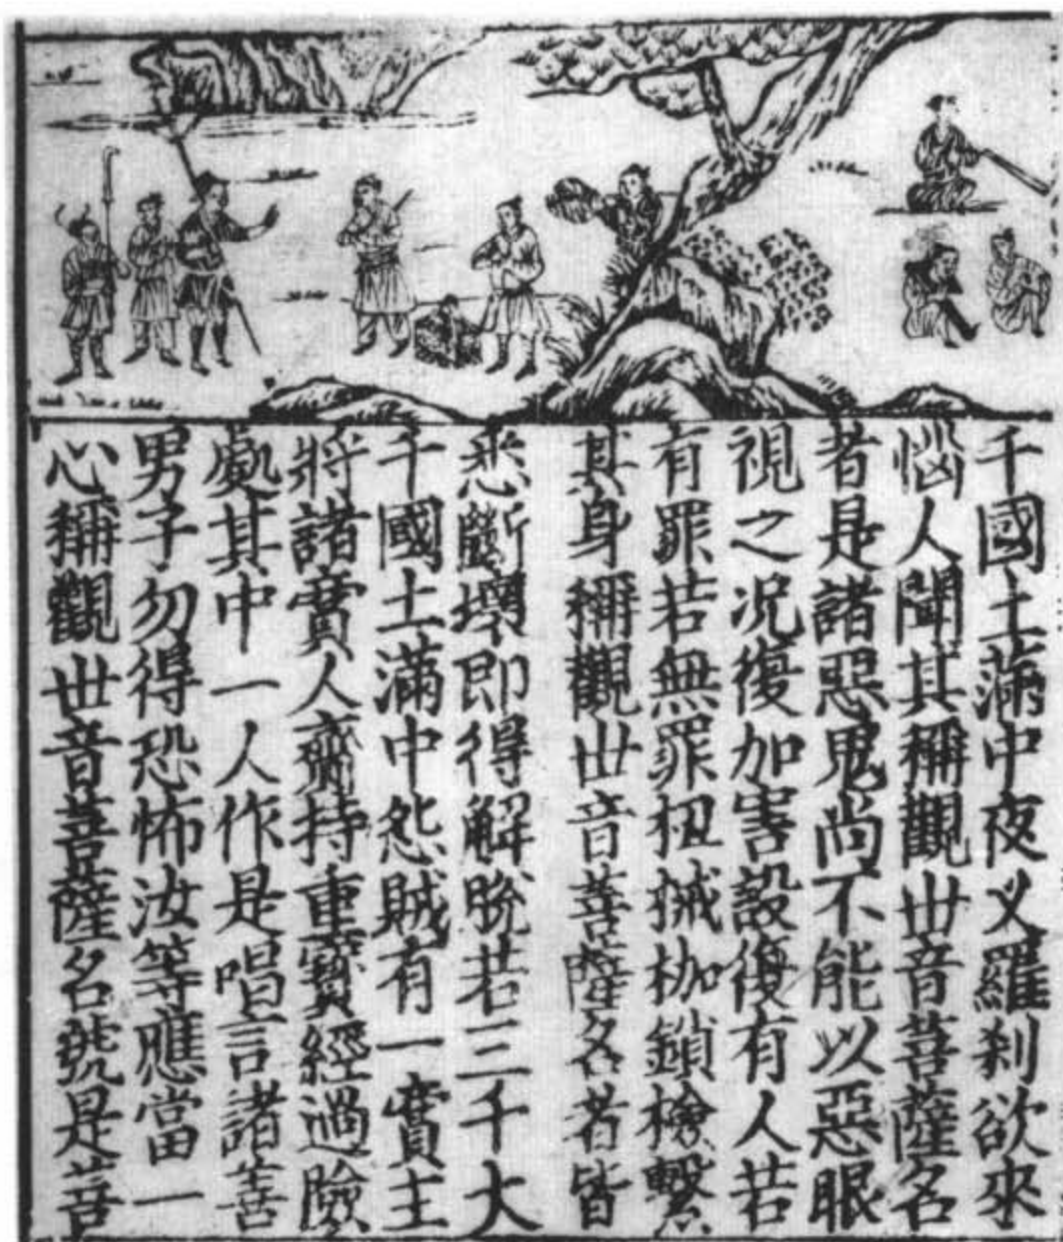 千國土滿中夜叉羅刹欲來
惱人聞其稱觀世音菩薩名
者是諸惡鬼尚不能以惡眼
視之况復加害設復有人若
有罪若無罪杻械枷鎖檢繫
其身稱觀世音菩薩名者皆
悉斷壞即得解脫若三千大
千國土滿中怨賊有一賣主
將諸賣人齎持重寳經過險
處其中一人作是唱言諸善
男子勿得恐怖汝等應當一
心稱觀世音菩薩名號是菩